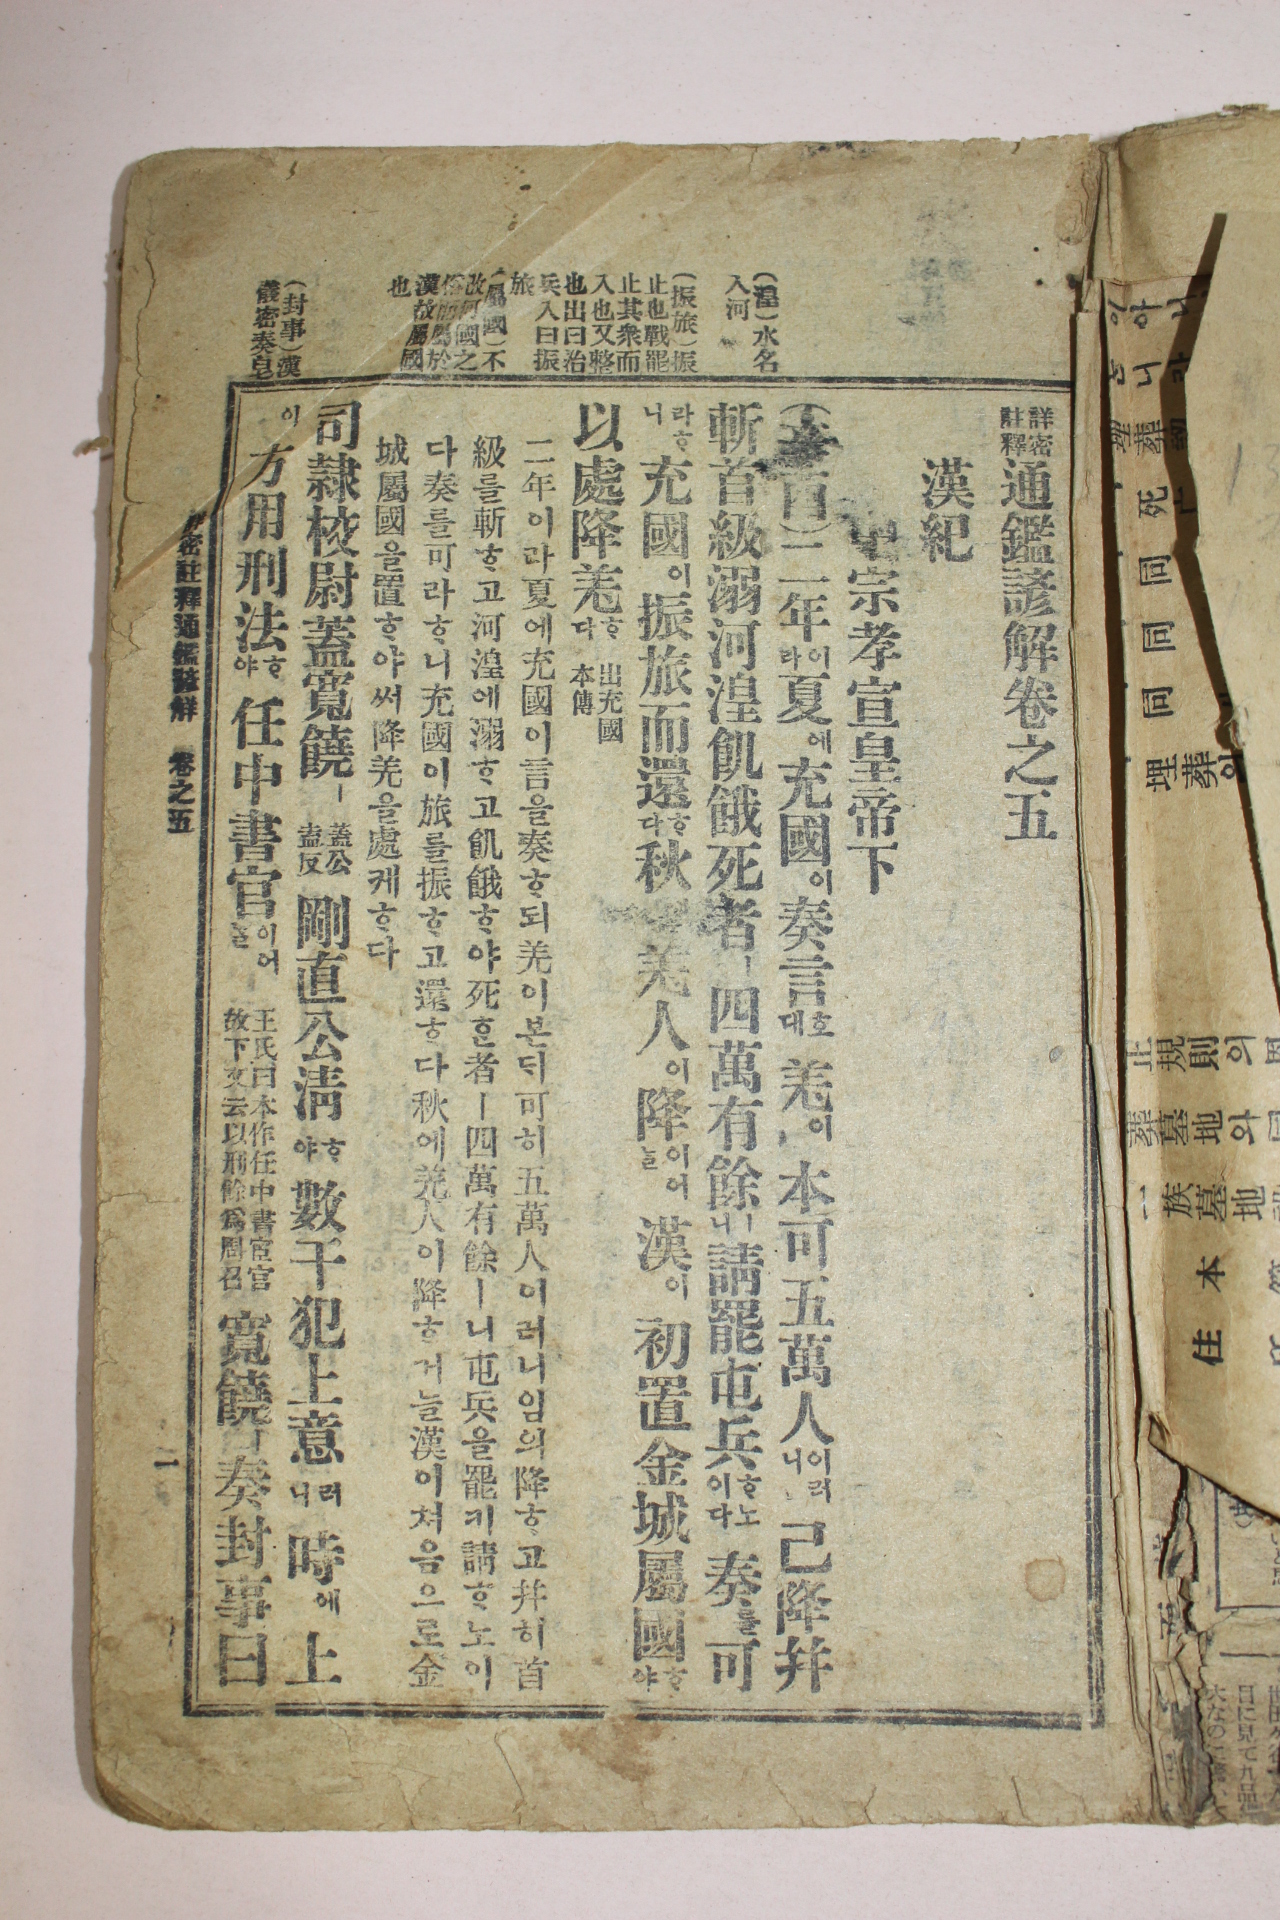 詳密註釋通鑑諺解卷之五
漢紀
中宗孝宣皇帝下
二年이라夏에充國이奏言호대羌이本可五萬人이러니已降幷
斬首級溺河湟飢餓死者ㅣ四萬有餘ㅣ니請罷屯兵ᄒᆞ노이다奏를可
라ᄒᆞ니充國이振旅而還ᄒᆞ다秋에羌人이降이어늘漢이初置金城屬國ᄒᆞ야
以處降羌ᄒᆞ다 出充國本傳
二年이라夏에充國이言을奏ᄒᆞ되羌이본ᄃᆡ可히五萬人이러니임의降ᄒᆞ고幷히首
級를斬ᄒᆞ고河湟에溺ᄒᆞ고飢餓ᄒᆞ야死ᄒᆞᆫ者ㅣ四萬有餘ㅣ니屯兵을罷키請ᄒᆞ노이
다奏를可라ᄒᆞ니充國이旅를振ᄒᆞ고還ᄒᆞ다秋에羌人이降ᄒᆞ거늘漢이처음으로金
城屬國을置ᄒᆞ야써降羌을處케ᄒᆞ다
司隷校尉蓋寬饒ㅣ 蓋公盍反 剛直公淸ᄒᆞ야數干犯上意러니時에上
이方用刑法ᄒᆞ야任中書官이어늘 王氏曰本作任中書宦官故下文云以刑餘爲周召 寬饒ㅣ奏封事曰
(湟)水名
入河
(振旅)振
止也戰罷
止其衆而
入也又整
也出曰治
兵入曰振
旅
(屬國)不
改何國之
俗而屬於
漢故屬國
也
(封事)漢
儀密奏皂
詳密註釋通鑑諺解 卷之五
一
埋葬
死
同
同
同
埋葬의
止規則의
葬墓地와
一族墓地
本
住